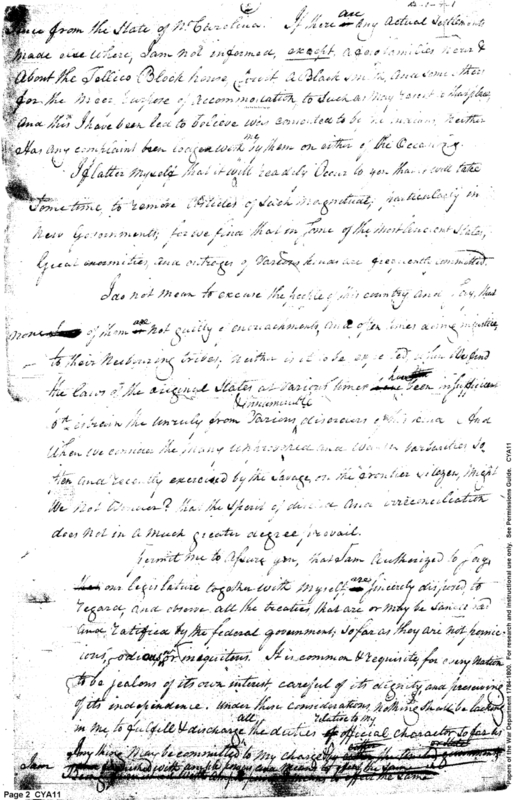 Since from the State of No. Carolina. If there are any actual Settlements
made else where, I am not informed, except a few families near &
About the Tellico Block house, Except a Black Smith, And some others
for the meer purpose of accommodation to Such as may resort to that place
And this I have been led to believe was consented to by the Indians, Neither
Has any complaint been lodged with me by them on either of the Occasions.
I flatter myself that it will readily Occur to you that it will take
Some time to remove Articles of Such magnitude; particularly in
New Governments; for we find that in Some of the most Ancient States,
Great enormities, and outrages of Various kinds are frequently committed.
I do not mean to excuse the people of this country And Say, that
none of them are not guilty of encroachments, and often times doing injustice,
to their Neibouring tribes, Neither is it to be expected when We find
the laws of the original States at various times have been insufficient
to restrain the unruly from Various innumerable disorders of this kind And
When we consider the many unprovoked and wanton barbarities So
often and recently exercised by the Savage, on the frontier Citizen, Might
We not Wonder? that the Spirit of discord And irreconciliation
does not in a much greater degree, prevail.
Permit me to Assure you, that I am Authorized to Say,
our legislature together with myself, are Sincerely disposed to
regard, and observe all the treaties that are or may be Sanctioned
And ratified by the federal government, So far as they are not pernic-
ious, odious or iniquitous. It is common & requisite for every Nation
to be jealous of its own interest, careful of its dignity and preserving
of its independence. Under these considerations, nothing Shall be lacking
in me, to fulfill & discharge all the duties relative to my official character, So far as
Any thing may be committed to my charge
I am
Page 2 CYA11
Papers of the War Department 1784-1800. For research and instructional use only. See Permissions Guide. CYA11